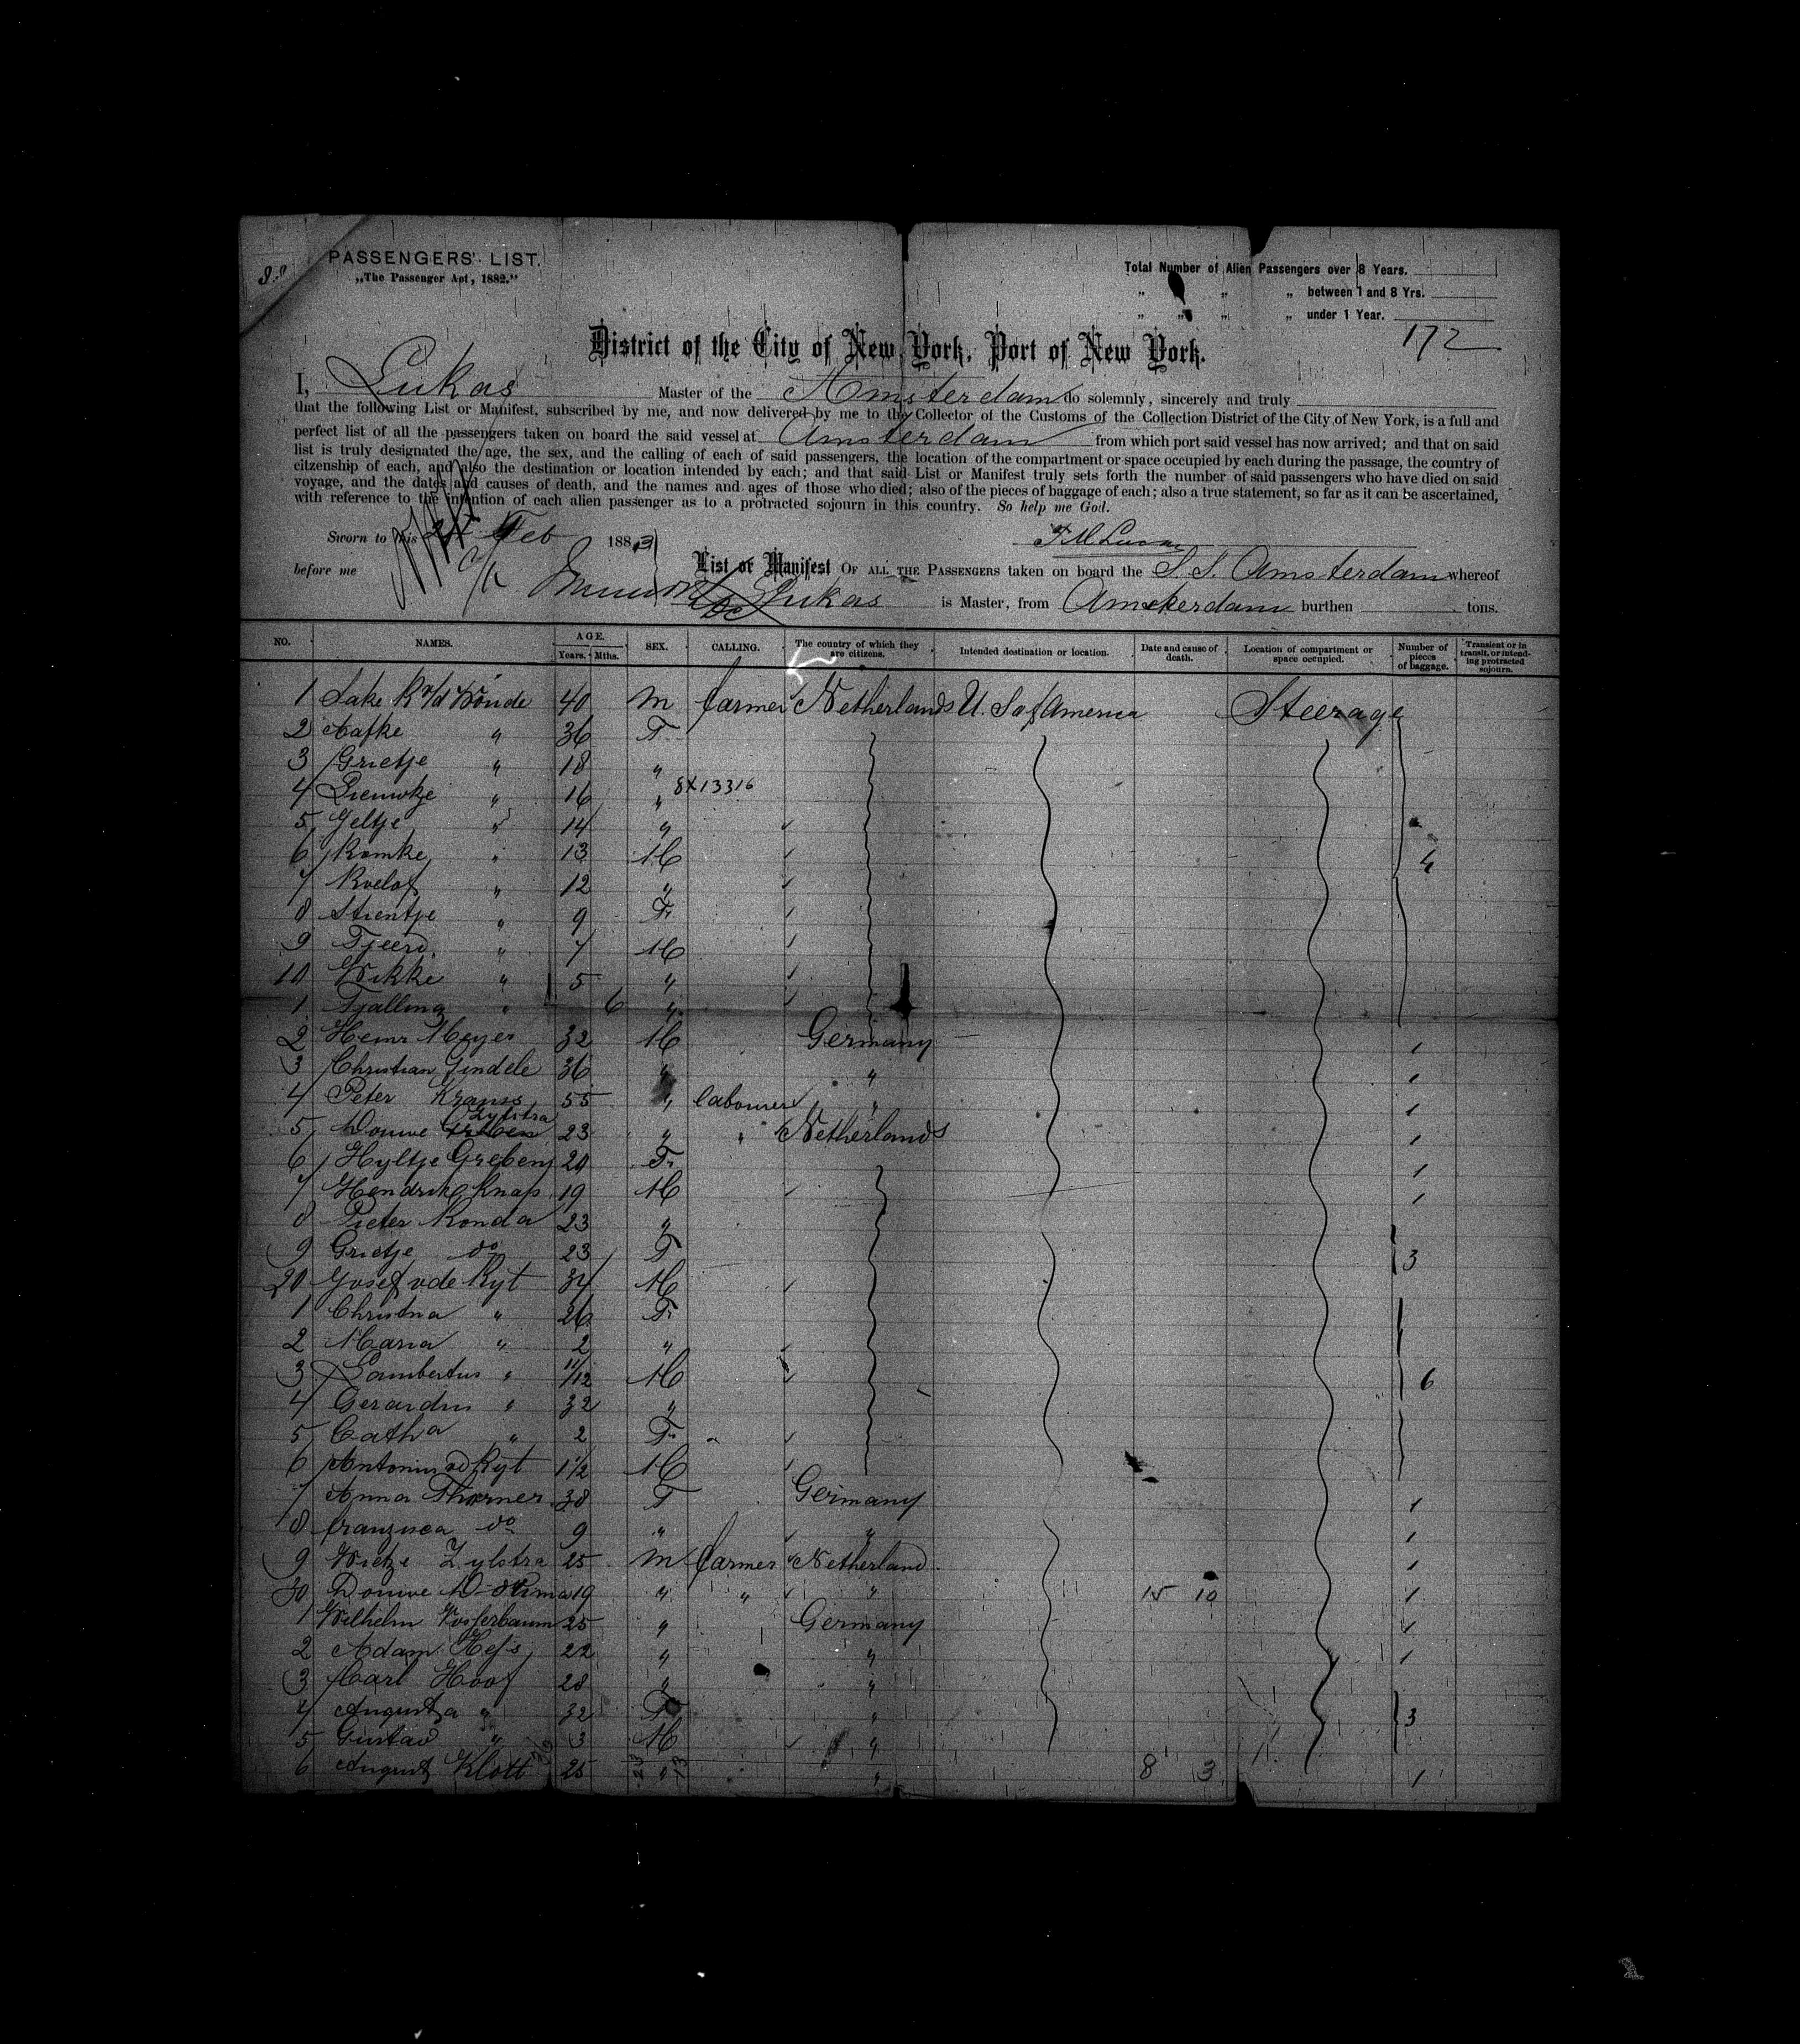 PASSENGERS' LIST.
„The Passenger Act, 1882."
Total Number of Alien Passengers over 8 Years.
„ „ „ between 1 and 8 Yrs.
„ „ „ „ under 1 Year.
172
District of the City of New York, Port of New York.
I, Lukas Master of the Amsterdam do solemnly, sincerely and truly
that the following List or Manifest, subscribed by me, and now delivered by me to the Collector of the Customs of the Collection District of the City of New York, is a full and
perfect list of all the passengers taken on board the said vessel at Amsterdam from which port said vessel has now arrived; and that on said
list is truly designated the age, the sex, and the calling of each of said passengers, the location of the compartment or space occupied by each during the passage, the country of
citzenship of each, and also the destination or location intended by each; and that said List or Manifest truly sets forth the number of said passengers who have died on said
voyage, and the dates and causes of death, and the names and ages of those who died; also of the pieces of baggage of each; also a true statement, so far as it can be ascertained,
with reference to the intention of each alien passenger as to a protracted sojourn in this country. So help me God.
Sworn to this Feb 1883
before me
List or Manifest OF ALL THE PASSENGERS taken on board the S. S. Amsterdam whereof
Lukas is Master, from Amsterdam burthen tons.
NO. NAMES. AGE. Years. Mths. SEX. CALLING. The country of which they are citizens. Intended destination or location. Date and cause of death. Location of compartment or space occupied. Number of pieces of baggage. Transient or in transit, or intending protracted sojourn.
1 Sake R v/d Woude 40 m farmer Netherlands U. S. of America Steerage
2 Aafke " 36 F.
3 Grietje " 18 "
4 " 16 " 8X13316
5 Jeltje " 14 "
6 Romke " 13 M 4
7 Roelof " 12 "
8 Stientje " 9 F.
9 Tjeerd " 7 M
10 Wikke " 5 "
1 Tjalling " 6 "
2 Heinr Meyer 32 M Germany 1
3 Christian Gindele 36 " " 1
4 Peter Krauss 55 " labourer " 1
5 Douwe Zylstra 23 " " Netherlands 1
6 Hyltje 20 F. 1
7 Hendrik Knap 19 M 1
8 Pieter Ronda 23 "
9 Grietje do 23 F 3
20 Josef v de Ryt 34 M
1 Christina " 26 F.
2 Maria " 2 "
3 Lambertus " 11/12 M 6
4 Gerardus " 32 "
5 Catha " 2 F.
6 Antonius vd Ryt 1 1/2 M
7 Anna Thorner 38 F Germany 1
8 Franzisca do 9 " " 1
9 Wietze Zylstra 25 m farmer Netherland 1
30 Douwe 19 " " " 15 10 1
1 Wilhelm 25 " Germany 1
2 Adam Hess 22 " " 1
3 Carl Hoof 28 " "
4 Augusta " 32 F. " 3
5 Gustav " 3 M "
6 August Klott 25 " " 8 3 1